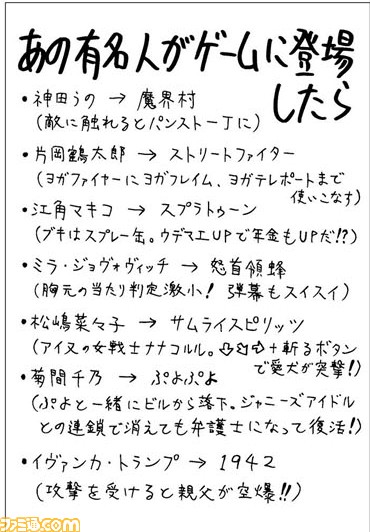 あの有名人がゲームに登場
したら
・神田うの → 魔界村
(敵に触れるとパンスト一丁に)
・片岡鶴太郎 → ストリートファイター
(ヨガファイヤーにヨガフレイム、ヨガテレポートまで
使いこなす)
・江角マキコ → スプラトゥーン
(ブキはスプレー缶。ウデマエUPで年金もUPだ!?)
・ミラ・ジョヴォヴィッチ → 怒首領蜂
(胸元の当たり判定激小! 弾幕もスイスイ)
・松嶋菜々子 → サムライスピリッツ
(アイヌの女戦士ナナコルル。⇩⬂⇨+斬るボタン
で愛犬が突撃!)
・菊間千乃 → ぷよぷよ
(ぷよと一緒にビルから落下。ジャニーズアイドル
との連鎖で消えても弁護士になって復活!)
・イヴァンカ・トランプ → 1942
(攻撃を受けると親父が空爆!!)
ファミ通.com